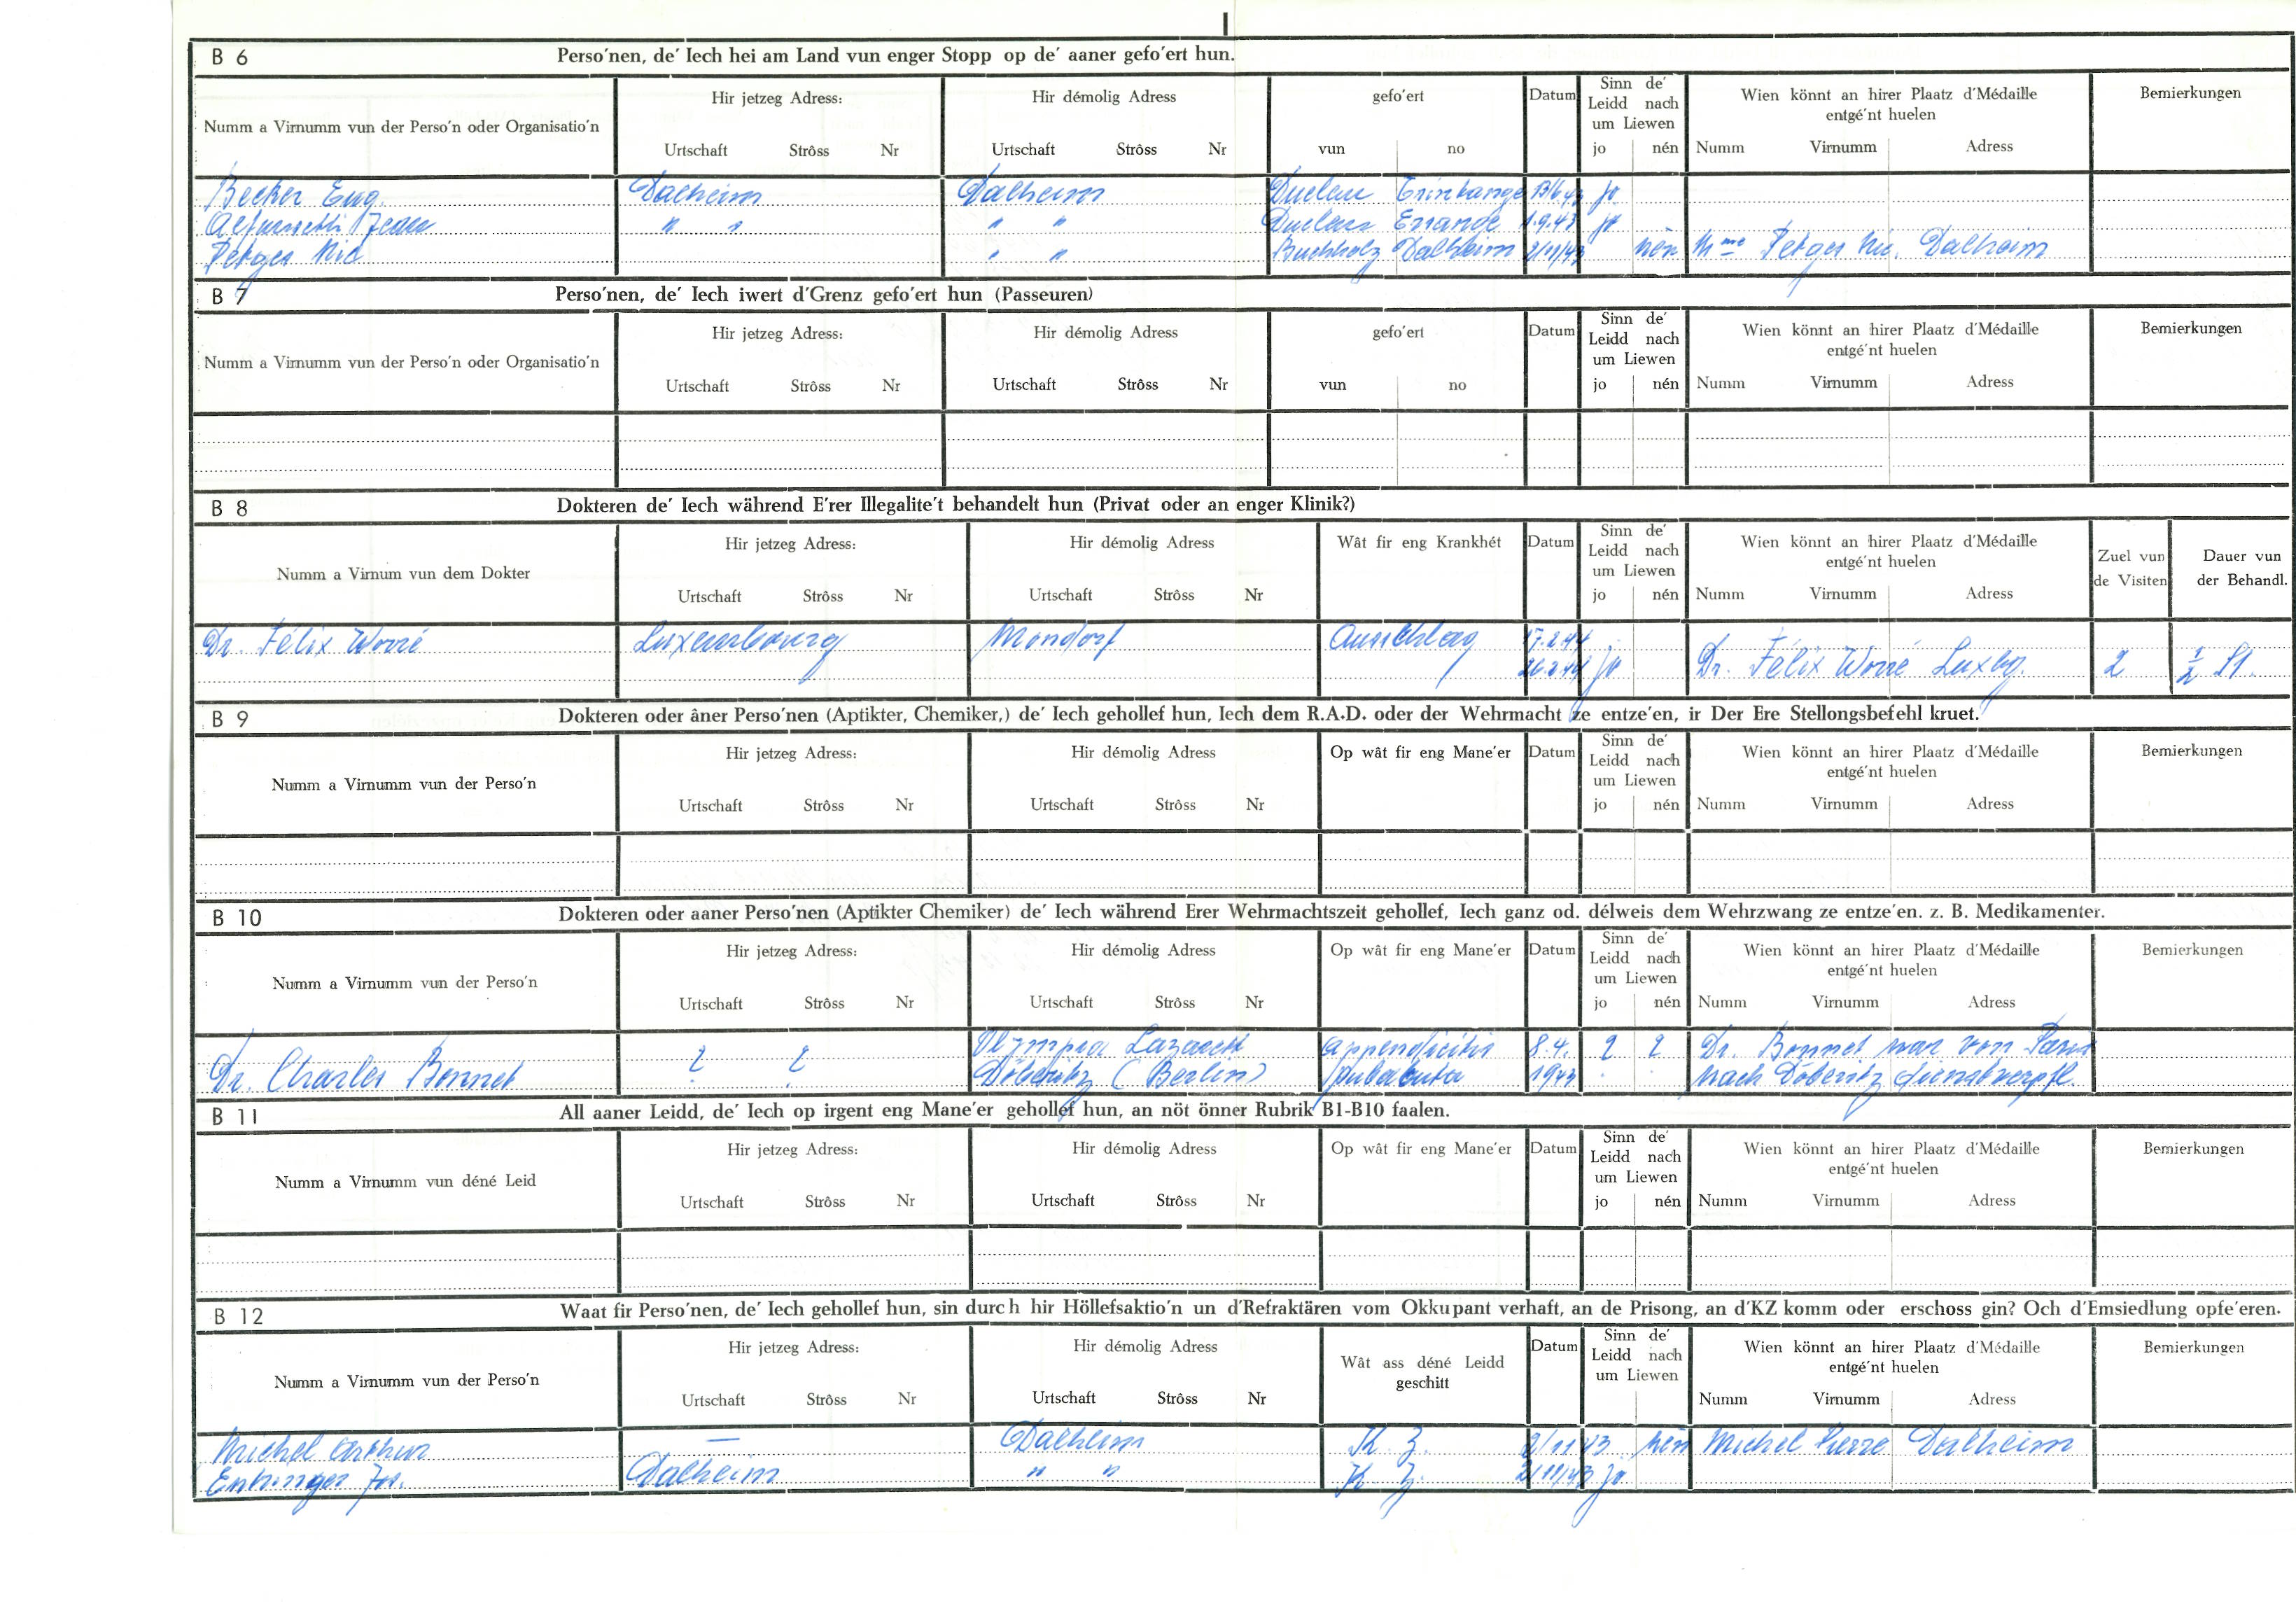 B 6 Perso'nen, de' Iech hei am Land vun enger Stopp op de' aaner gefo'ert hun.
Numm a Virnumm vun der Perso'n oder Organisatio'n
Hir jetzeg Adress:
Urtschaft Strôss Nr
Hir démolig Adress
Urtschaft Strôss Nr
gefo'ert
vun no
Datum
Sinn de'
Leidd nach
um Liewen
jo nén
Wien könnt an hirer Plaatz d'Médaille
entgé'nt huelen
Numm Virnumm Adress
Bemierkungen
Becker Eug. Dalheim Dalheim Duelem 13/6/43 jo
Jean " " " " Duelem 1.9.43 jo
Petges Nic " " Buchholz Dalheim 2/11/43 nén Mme Petges Nic. Dalheim
B 7 Perso'nen, de' Iech iwert d'Grenz gefo'ert hun (Passeuren)
Numm a Virnumm vun der Perso'n oder Organisatio'n
Hir jetzeg Adress:
Urtschaft Strôss Nr
Hir démolig Adress
Urtschaft Strôss Nr
gefo'ert
vun no
Datum
Sinn de'
Leidd nach
um Liewen
jo nén
Wien könnt an hirer Plaatz d'Médaille
entgé'nt huelen
Numm Virnumm Adress
Bemierkungen
B 8 Dokteren de' Iech während E'rer Illegalite't behandelt hun (Privat oder an enger Klinik?)
Numm a Virnum vun dem Dokter
Hir jetzeg Adress:
Urtschaft Strôss Nr
Hir démolig Adress
Urtschaft Strôss Nr
Wât fir eng Krankhét
Datum
Sinn de'
Leidd nach
um Liewen
jo nén
Wien könnt an hirer Plaatz d'Médaille
entgé'nt huelen
Numm Virnumm Adress
Zuel vun
de Visiten
Dauer vun
der Behandl.
Dr. Félix Worré Luxembourg Mondorf Ausschlag 17.2.44
26.2.44 jo Dr. Félix Worré Luxbg. 2 ½ St.
B 9 Dokteren oder âner Perso'nen (Aptikter, Chemiker,) de' Iech gehollef hun, Iech dem R.A.D. oder der Wehrmacht ze entze'en, ir Der Ere Stellongsbefehl kruet.
Numm a Virnumm vun der Perso'n
Hir jetzeg Adress:
Urtschaft Strôss Nr
Hir démolig Adress
Urtschaft Strôss Nr
Op wât fir eng Mane'er
Datum
Sinn de'
Leidd nach
um Liewen
jo nén
Wien könnt an hirer Plaatz d'Médaille
entgé'nt huelen
Numm Virnumm Adress
Bemierkungen
B 10 Dokteren oder aaner Perso'nen (Aptikter Chemiker) de' Iech während Erer Wehrmachtszeit gehollef, Iech ganz od. délweis dem Wehrzwang ze entze'en. z. B. Medikamenter.
Numm a Virnumm vun der Perso'n
Hir jetzeg Adress:
Urtschaft Strôss Nr
Hir démolig Adress
Urtschaft Strôss Nr
Op wât fir eng Mane'er
Datum
Sinn de'
Leidd nach
um Liewen
jo nén
Wien könnt an hirer Plaatz d'Médaille
entgé'nt huelen
Numm Virnumm Adress
Bemierkungen
? ? Olympia Lazarett appendicitis 8.4. ? ? Dr. Bonnet war von Paris
Dr. Charles Bonnet Döberitz (Berlin) 1943 nach Döberitz dienstverpfl.
B 11 All aaner Leidd, de' Iech op irgent eng Mane'er gehollef hun, an nöt önner Rubrik B1-B10 faalen.
Numm a Virnumm vun déné Leid
Hir jetzeg Adress:
Urtschaft Strôss Nr
Hir démolig Adress
Urtschaft Strôss Nr
Op wât fir eng Mane'er
Datum
Sinn de'
Leidd nach
um Liewen
jo nén
Wien könnt an hirer Plaatz d'Médaille
entgé'nt huelen
Numm Virnumm Adress
Bemierkungen
B 12 Waat fir Perso'nen, de' Iech gehollef hun, sin durch hir Höllefsaktio'n un d'Refraktären vom Okkupant verhaft, an de Prisong, an d'KZ komm oder erschoss gin? Och d'Emsiedlung opfe'eren.
Numm a Virnumm vun der Perso'n
Hir jetzeg Adress:
Urtschaft Strôss Nr
Hir démolig Adress
Urtschaft Strôss Nr
Wât ass déné Leidd
geschitt
Datum
Sinn de'
Leidd nach
um Liewen
Wien könnt an hirer Plaatz d'Médaille
entgé'nt huelen
Numm Virnumm Adress
Bemierkungen
Michel Arthur — Dalheim K. Z. 2/11 43 nén Michel Pierre Dalheim
Entringer Jos. Dalheim " " K Z. 2/11/43 jo